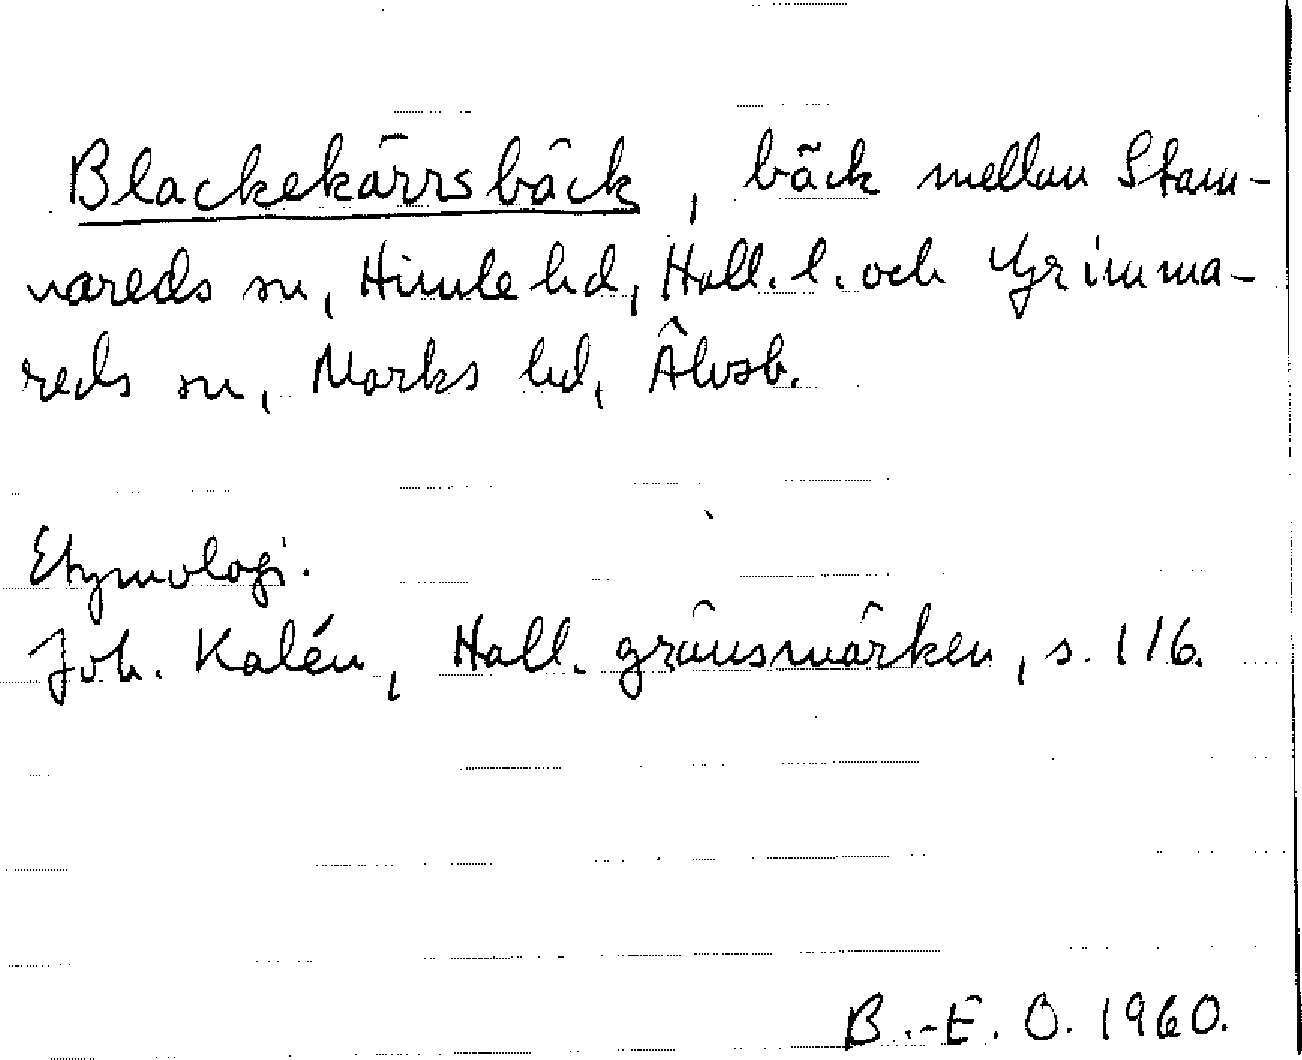 Blackekärrsbäck, bäck mellan Stam-
nareds sn, Himle hd, Hall. l. och Grimma-
reds sn, Marks hd, Älvsb.
Etymologi.
Joh. Kalén, Hall. gränsmärken, s. 116.
B.-E. O. 1960.